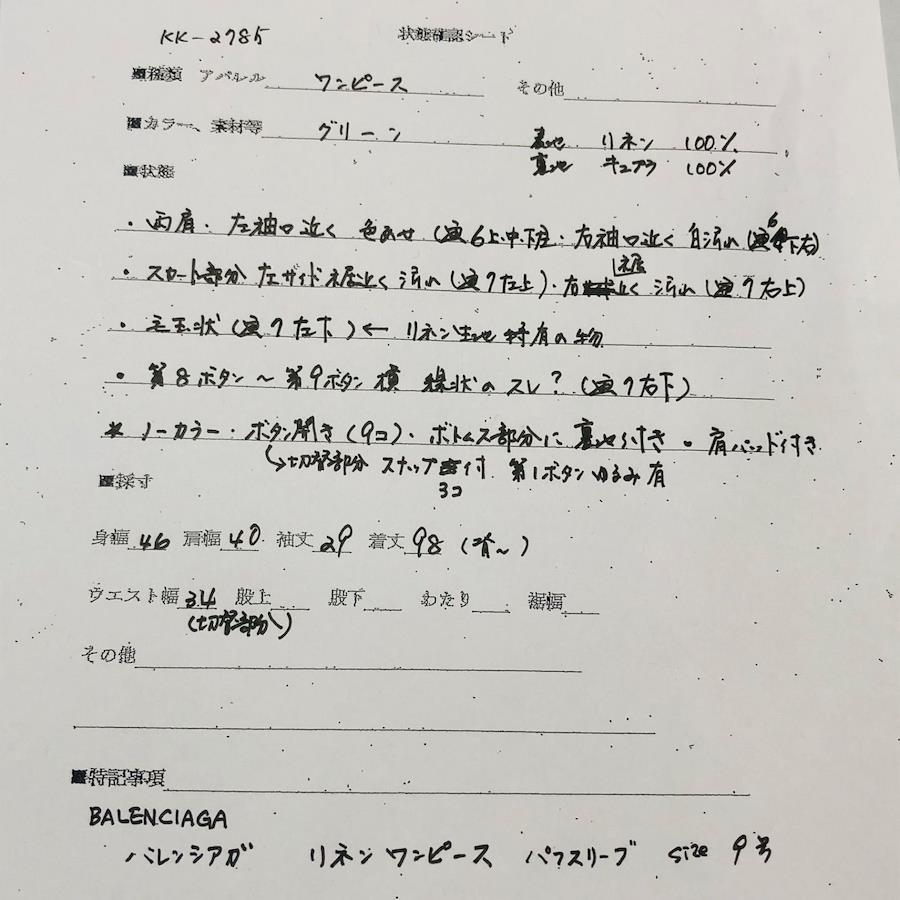 KK-2785 状態確認シート
■種類 アパレル ワンピース その他
■カラー、素材等 グリーン 表地 リネン 100%
裏地 キュプラ 100%
■状態
・両肩・左袖口近く 色あせ(画6上・中・下左・右袖口近く 白汚れ(画6下右)
・スカート部分 左サイド裾近く 汚れ(画7左上)・右裾近く 汚れ(画7右上)
・毛玉状(画7左下)← リネン生地特有の物
・第8ボタン〜第9ボタン横 線状のスレ?(画7右下)
* ノーカラー・ボタン開き(9コ)・ボトムス部分に裏地付き・肩パッド付き
↳切替部分 スナップ付 3コ 第1ボタンゆるみ有
■採寸
身幅 46 肩幅 40 袖丈 29 着丈 98 (背〜)
ウエスト幅 34 股上 股下 わたり 裾幅
(切替部分)
その他
■特記事項
BALENCIAGA
バレンシアガ リネン ワンピース パフスリーブ size 9号